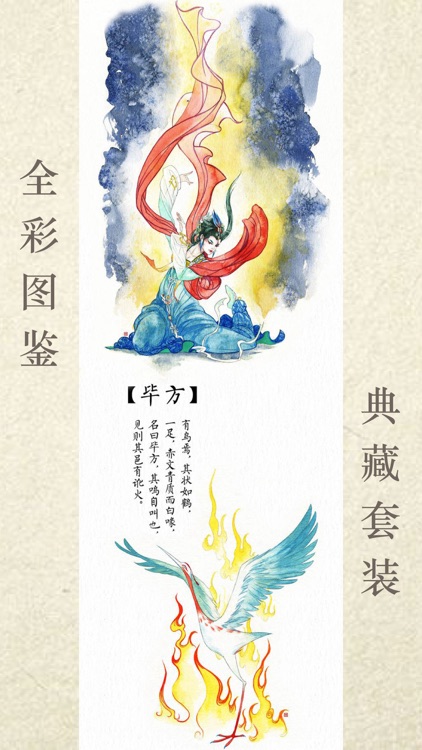 全彩图鉴
【毕方】
有鸟焉，其状如鹤，
一足，赤文青质而白喙，
名曰毕方，其鸣自叫也，
见则其邑有讹火。
典藏套装